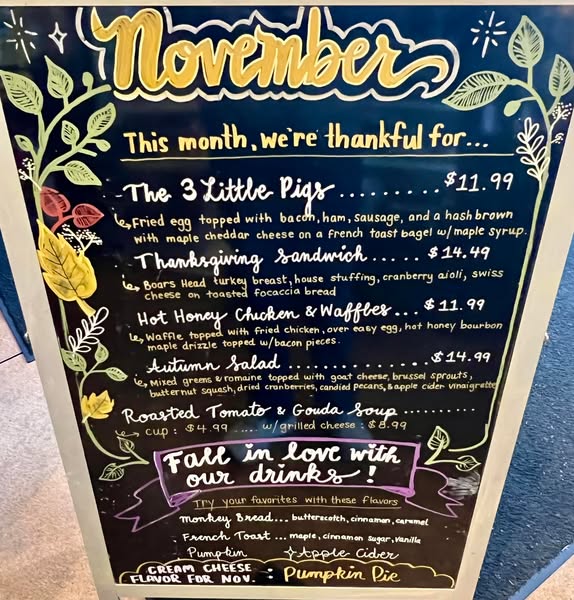 November
This month, we're thankful for...
The 3 Little Pigs ........ $11.99
Fried egg topped with bacon, ham, sausage, and a hash brown
with maple cheddar cheese on a french toast bagel w/ maple syrup.
Thanksgiving Sandwich ..... $14.49
Boars Head turkey breast, house stuffing, cranberry aioli, swiss
cheese on toasted focaccia bread
Hot Honey Chicken & Waffles... $11.99
Waffle topped with fried chicken, over easy egg, hot honey bourbon
maple drizzle topped w/ bacon pieces.
Autumn Salad .............. $14.99
Mixed greens & romaine topped with goat cheese, brussel sprouts,
butternut squash, dried cranberries, candied pecans, & apple cider vinaigrette
Roasted Tomato & Gouda Soup ..........
cup : $4.99 ..... w/ grilled cheese : $8.99
Fall in love with
our drinks !
Try your favorites with these flavors
Monkey Bread... butterscotch, cinnamon, caramel
French Toast ... maple, cinnamon sugar, vanilla
Pumpkin Apple Cider
CREAM CHEESE
FLAVOR FOR NOV. : Pumpkin Pie